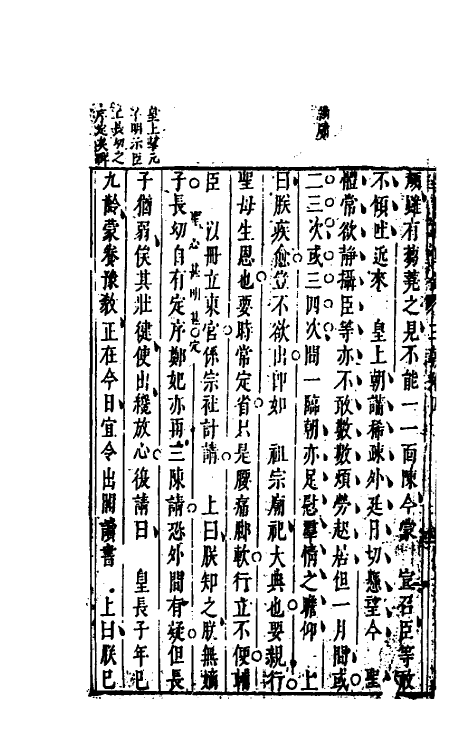 顏雖有蒭蕘之見不能一一面陳今蒙　宣召臣等敢
不傾吐近來　皇上朝講稀疎外廷日切懸望今　聖
體常欲靜攝臣等亦不敢數數煩勞起居但一月間或
二三次或三四次間一臨朝亦足慰羣情之瞻仰　上
曰朕疾愈豈不欲出卽如　祖宗廟祀大典也要親行
聖母生恩也要時常定省只是腰痛脚軟行立不便輔
臣　以冊立東宮係宗社計請　上曰朕知之朕無嫡
聖心甚明甚定
子長幼自有定序鄭妃亦再三陳請恐外間有疑但長
子猶弱俟其壯徤使出纔放心後請曰　皇長子年已
九齡蒙養豫敎正在今日宜令出閣讀書　上曰朕已
皇上舉元
子明示臣
長幼之